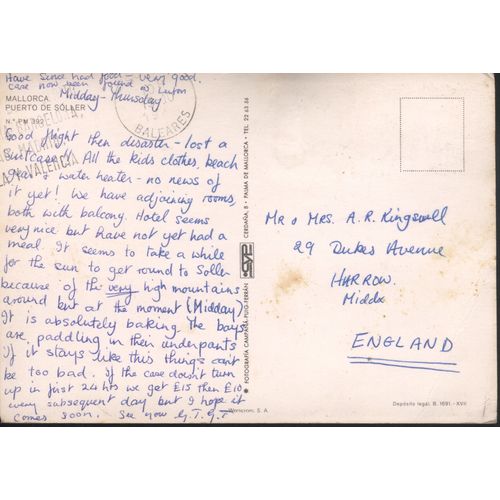 Have since had food - very good.
case now been found in Luton
Midday - Thursday
MALLORCA
PUERTO DE SÓLLER
N.º PM 392
BALEARES
Good flight then disaster - lost a
suitcase!! All the kids clothes, beach
gear & water heater - no news of
it yet! We have adjoining rooms,
both with balcony. Hotel seems
very nice but have not yet had a
meal. It seems to take a while
for the sun to get round to Soller
because of the very high mountains
around but at the moment (Midday)
It is absolutely baking. The boys
are paddling in their underpants
If it stays like this things can't
be too bad. If the case doesn't turn
up in just 24 hrs we get £15 then £10
every subsequent day but I hope it
comes soon. See you G.T.G.T
FOTOGRAFIA CAMPAÑÁ-PUIG-FERRÁN
CERDAÑA, 8 • PALMA DE MALLORCA • TEL. 22 63 36
Mr & Mrs. A. R. Kingswell
29 Dukes Avenue
HARROW.
Middx
ENGLAND
S. A.
Depósito legal. B. 1691.-XVII